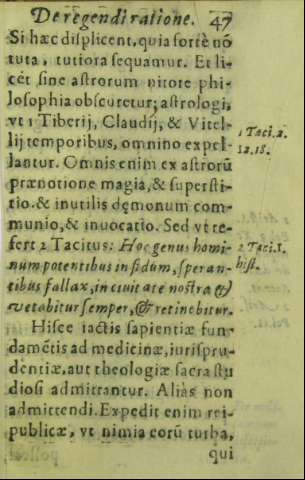 De regendi ratione. 47
Si hæc displicent, quia fortè nõ
tuta, tutiora sequamur. Et li-
cèt sine astrorum nitore phi-
losophia obscuretur; astrologi,
vt 1 Tiberij, Claudij, & Vitel-
lij temporibus, omnino expel-
lantur. Omnis enim ex astrorũ
prænotione magia, & supersti-
tio. & inutilis dęmonum com-
munio, & inuocatio. Sed vt re-
fert 2 Tacitus: Hoc genus homi-
num potentibus infidum, speran-
tibus fallax, in ciuitate nostra &
vetabitur semper, & retinebitur.
Hisce iactis sapientiæ fun-
damẽtis ad medicinæ, iurispru-
dentiæ, aut theologiæ sacra stu
diosi admittantur. Aliàs non
admittendi. Expedit enim rei-
publicæ, vt nimia eorũ turba,
qui
1 Taci. 2.
12. 18.
2 Taci. 1.
hist.